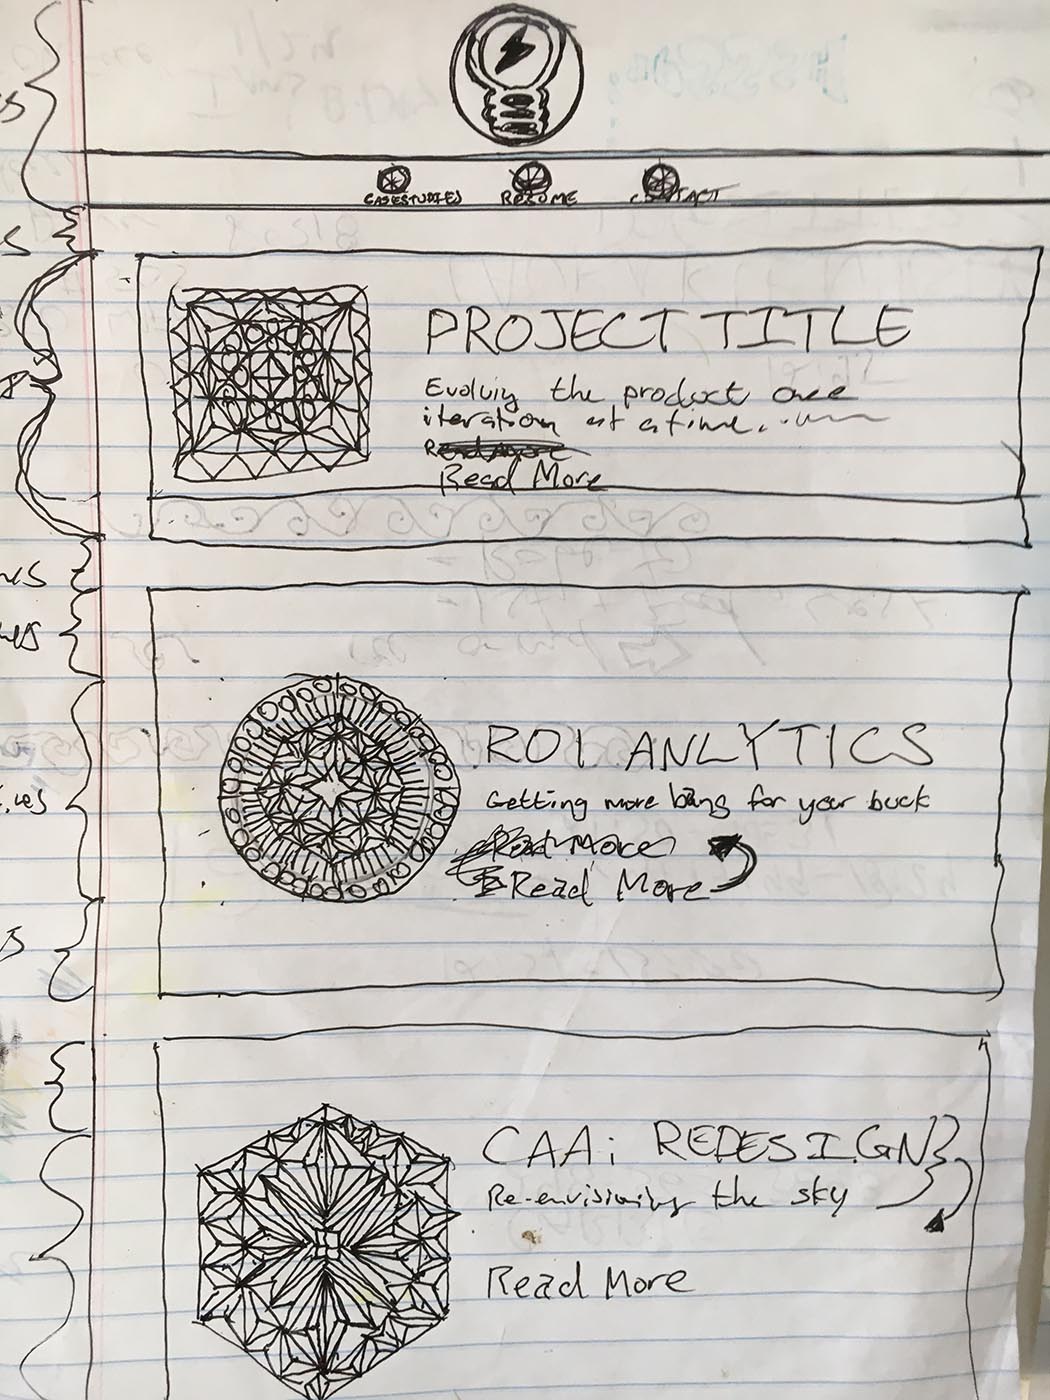 CASESTUDIES RESUME CONTACT
PROJECT TITLE
Evolving the product one
iteration at a time.
Read More
Read More
ROI ANLYTICS
Getting more bang for your buck
Read More
Read More
CAAi REDESIGN
Re-envisioning the sky
Read More